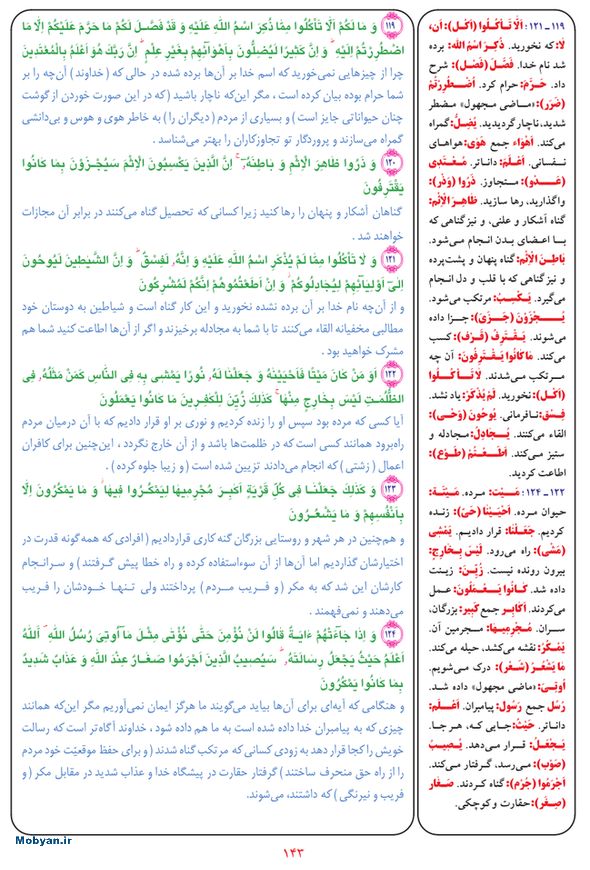 ۱۱۹ ـ ۱۲۱: اَلّا تَأکُـلُوا (اَکَلَ): اَن،
لا: که نخورید. ذُکِرَ اسْمُ اللّه: برده
شد نام خدا. فَصَّلَ (فَصَلَ): شرح
داد. حَـرَّمَ: حرام کرد. اُضْـطُـرِرْتُمْ
(ضَرَرَ): «ماضی مجهول» مضطر
شدید، ناچار گردیدید. یُضِـلُّ: گمراه
می‌کند. اَهْواء جمع هَوٰی: هواهای
نفسانی. اَعْلَمُ: دانـاتر. مُـعْـتَدِی
(عَـدَوَ): متجاوز. ذَرُوا (وَذَرَ):
واگذارید، رها سازید. ظاهِرَ الْاِثْم:
گناه آشکار و علنی، و نیز گناهی که
با اعضای بدن انجام می‌شود.
باطِنَ الْاِثْم: گناه پنهان و پشت‌پرده
و نیز گناهی که با قلب و دل انجام
می‌گیرد. یَکْسِبُ: مرتکب می‌شود.
یُـجْـزَوْنَ (جَـزَیَ): جزا داده
می‌شوند. یَـقْتَـرِفُ (قَـرَفَ): کسب
می‌کند. ما کانُوا یَـقْتَرِفُونَ: آن چه
مرتکب می‌شدند. لا تَـأکُـلُوا
(اَکَلَ): نخورید. لَمْ یُذْکَرْ: یاد نشد.
فِسْق: نافرمانی. یُوحُونَ (وَحَیَ):
القاء می‌کنند. یُـجادِلُ: مجادله و
ستیز می‌کند. اَطَـعْـتُمْ (طَـوَعَ):
اطاعت کردید.
۱۲۲ ـ ۱۲۴: مَـیْـت: مرده. مَـیْتَة:
حیوان مرده. اَحْیَیْنا (حَیَّ): زنده
کردیم. جَعَلْنا: قرار دادیم. یَمْشِی
(مَشَیَ): راه می‌رود. لَیْسَ بِخارِج:
بیرون رونده نیست. زُیِّنَ: زیـنت
داده شد. کـانُوا یَـعْمَلُونَ: عـمل
می‌کردند. اَکابِر جمع کَبیر: بزرگان،
سـران. مُجْرِمِیها: مـجرمین آن.
یَمْکُرُ: نقشه می‌کشد، حیله می‌کند.
ما یَشْعُرُ (شَعَرَ): درک می‌شویم.
اُوتِیَ: «ماضی مجهول» داده شد.
رُسُل جمع رَسُول: پیامبران. اَعْـلَم:
داناتر. حَیْثُ: جایی که، هر جـا.
یَـجْعَلُ: قـرار می‌دهد. یُـصیبُ
(صَوَبَ): می‌رسد، گرفتار می‌کند.
اَجْرَمُوا (جَرَمَ): گناه کـردند. صَغار
(صِغَر): حقارت و کوچکی.
۱۱۹ وَ ما لَکُمْ اَلّا تَأْکُلُوا مِمّا ذُکِرَ اسْمُ اللّهِ عَلَیْهِ وَ قَدْ فَصَّلَ لَکُمْ ما حَرَّمَ عَلَیْکُمْ اِلّا مَا
اضْطُرِرْتُمْ اِلَیْهِ وَ اِنَّ کَثیرًا لَیُضِلُّونَ بِاَهْوآئِهِمْ بِغَیْرِ عِلْمٍ اِنَّ رَبَّکَ هُوَ اَعْلَمُ بِالْمُعْتَدینَ
چرا از چیزهایی نمی‌خورید که اسم خدا بر آن‌ها برده شده در حالی که (خداوند) آن‌چه را بر
شما حرام بوده بیان کرده است، مگر این‌که ناچار باشید (که در این صورت خوردن از گوشت
چنان حیواناتی جایز است) و بسیاری از مردم (دیگران را) به خاطر هوی و هوس و بی‌دانشی
گمراه می‌سازند و پروردگار تو تجاوزکاران را بهتر می‌شناسد.
۱۲۰ وَ ذَرُوا ظاهِرَ الْاِثْمِ وَ باطِنَهُ اِنَّ الَّذینَ یَکْسِبُونَ الْاِثْمَ سَیُجْزَوْنَ بِما کانُوا
یَقْتَرِفُونَ
گناهان آشکار و پنهان را رها کنید زیرا کسانی که تحصیل گناه می‌کنند در برابر آن مجازات
خواهند شد.
۱۲۱ وَ لا تَأْکُلُوا مِمّا لَمْ یُذْکَرِ اسْمُ اللّهِ عَلَیْهِ وَ اِنَّهُ لَفِسْقٌ وَ اِنَّ الشَّیٰطینَ لَیُوحُونَ
اِلٰی اَوْلِیآئِهِمْ لِیُجادِلُوکُمْ وَ اِنْ اَطَعْتُمُوهُمْ اِنَّکُمْ لَمُشْرِکُونَ
و از آن‌چه نام خدا بر آن برده نشده نخورید و این کار گناه است و شیاطین به دوستان خود
مطالبی مخفیانه القاء می‌کنند تا با شما به مجادله برخیزند و اگر از آن‌ها اطاعت کنید شما هم
مشرک خواهید بود.
۱۲۲ اَوَ مَنْ کانَ مَیْتًا فَاَحْیَیْناهُ وَ جَعَلْنا لَهُ نُورًا یَمْشی بِهِ فِی النّاسِ کَمَنْ مَثَلُهُ فِی
الظُّلُمٰتِ لَیْسَ بِخارِجٍ مِنْها کَذٰلِکَ زُیِّنَ لِلْکٰفِرینَ ما کانُوا یَعْمَلُونَ
آیا کسی که مرده بود سپس او را زنده کردیم و نوری بر او قرار دادیم که با آن درمیان مردم
راه‌برود همانند کسی است که در ظلمت‌ها باشد و از آن خارج نگردد، این‌چنین برای کافران
اعمال (زشتی) که انجام می‌دادند تزیین شده است (و زیبا جلوه کرده).
۱۲۳ وَ کَذٰلِکَ جَعَلْنا فی کُلِّ قَرْیَةٍ اَکابِرَ مُجْرِمیها لِیَمْکُرُوا فیها وَ ما یَمْکُرُونَ اِلّا
بِاَنْفُسِهِمْ وَ ما یَشْعُرُونَ
و هم‌چنین در هر شهر و روستایی بزرگان گنه کاری قراردادیم (افرادی که همه‌گونه قدرت در
اختیارشان گذاردیم اما آن‌ها از آن سوءاستفاده کرده و راه خطا پیش گـرفتند) و سـرانـجام
کارشان این شد که به مکر (و فـریب مـردم) پرداختند ولی تـنها خـودشان را فریب
می‌دهند و نمی‌فهمند.
۱۲۴ وَ اِذا جآءَتْهُمْ ءایَةٌ قالُوا لَنْ نُؤْمِنَ حَتّٰی نُؤْتٰی مِثْلَ ما اُوتِیَ رُسُلُ اللّهِ اَللّهُ
اَعْلَمُ حَیْثُ یَجْعَلُ رِسالَتَهُ سَیُصیبُ الَّذینَ اَجْرَمُوا صَغارٌ عِنْدَ اللّهِ وَ عَذابٌ شَدیدٌ
بِما کانُوا یَمْکُرُونَ
و هنگامی که آیه‌ای برای آن‌ها بیاید می‌گویند ما هرگز ایمان نمی‌آوریم مگر این‌که همانند
چیزی که به پیامبران خدا داده شده است به ما هم داده شود، خداوند آگاه‌تر است که رسالت
خویش را کجا قرار دهد به زودی کسانی که مرتکب گناه شدند (و برای حفظ موقعیّت خود مردم
را از راه حق منحرف ساختند) گرفتار حقارت در پیشگاه خدا و عذاب شدید در مقابل مکر (و
فریب و نیرنگی) که داشتند، می‌شوند.
Mobyan.ir
۱۴۳